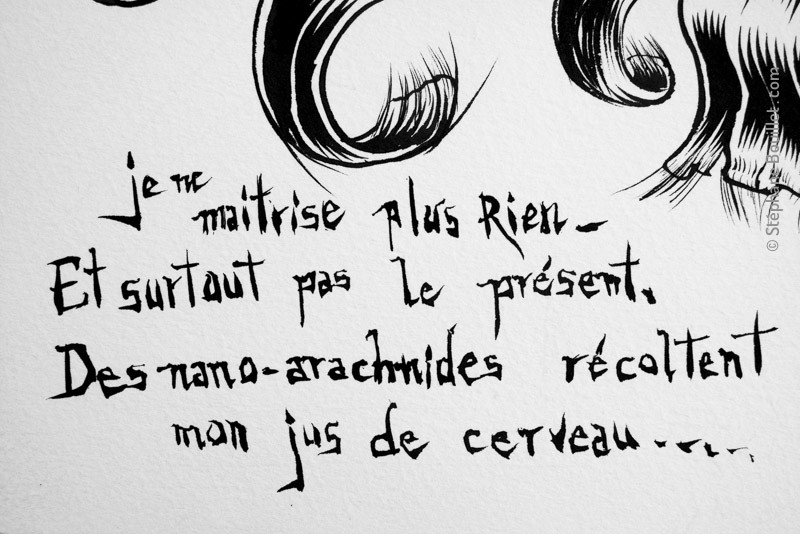 je ne
maitrise plus Rien -
Et surtout pas le présent.
Des nano-arachnides récoltent
mon jus de cerveau......
© Stéphane-Bouillet.com